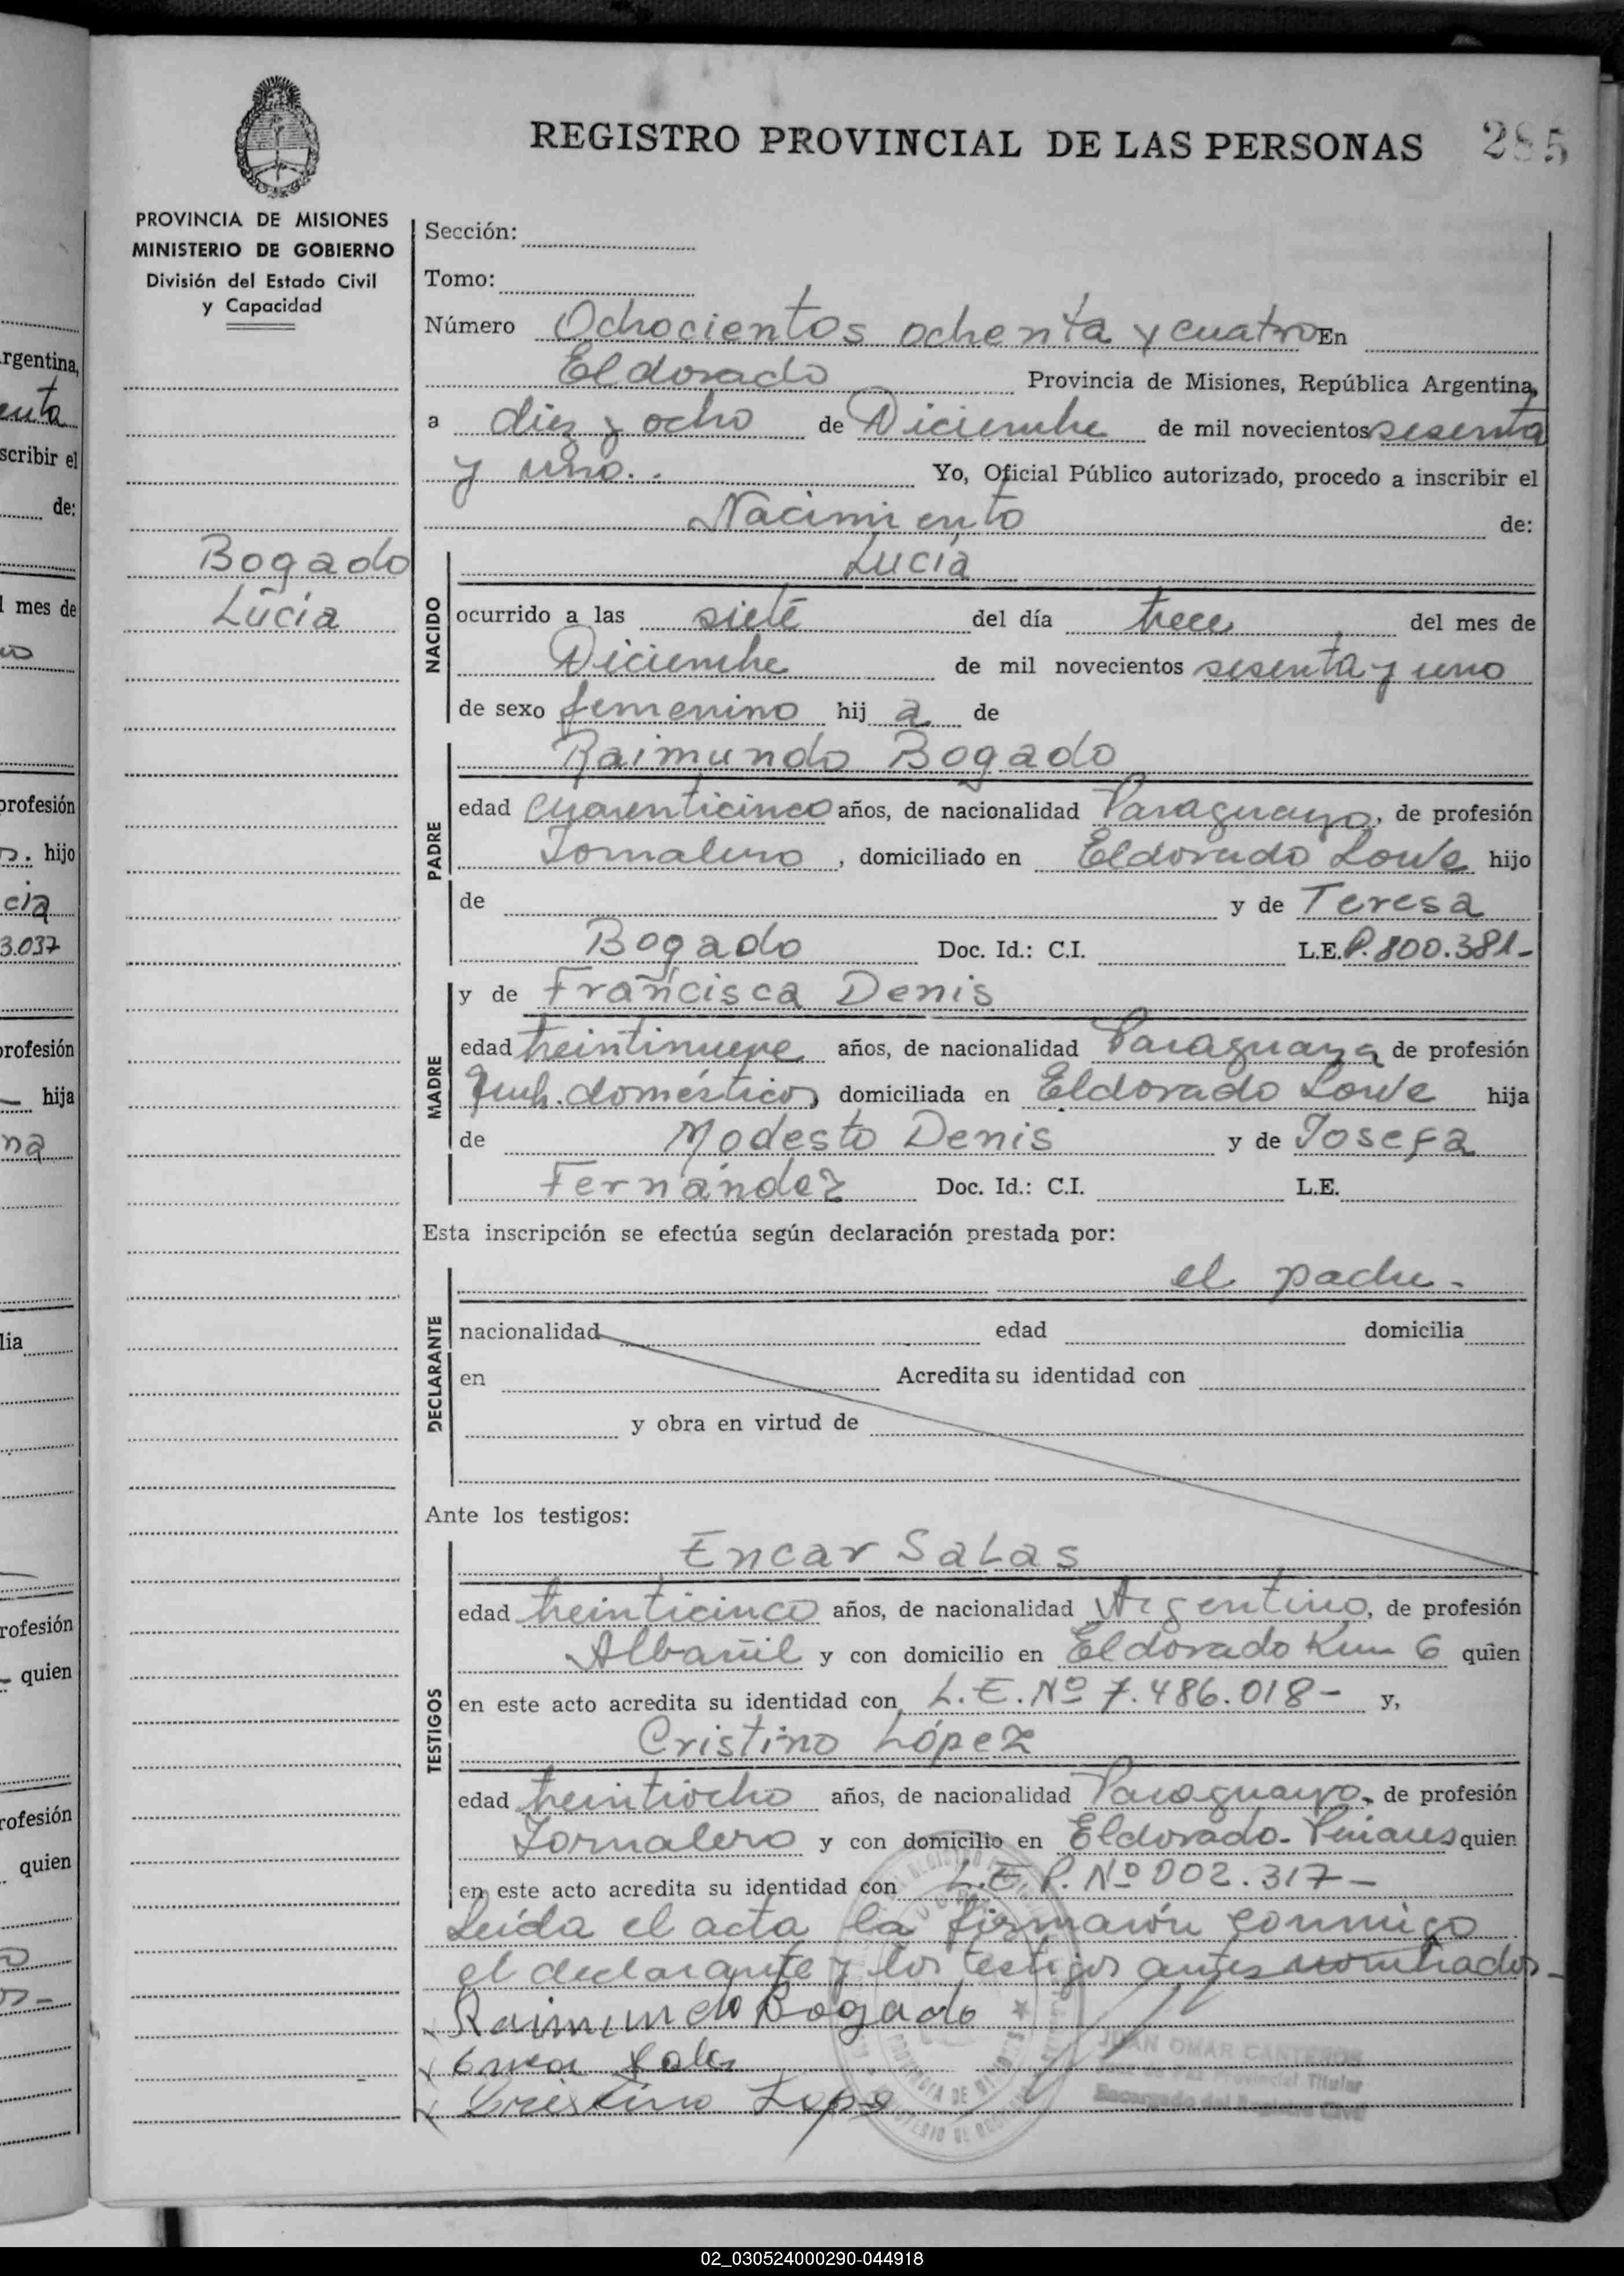 REGISTRO PROVINCIAL DE LAS PERSONAS 285
PROVINCIA DE MISIONES
MINISTERIO DE GOBIERNO
División del Estado Civil
y Capacidad
Bogado
Lucía
Sección:
Tomo:
Número Ochocientos ochenta y cuatro En
Eldorado Provincia de Misiones, República Argentina,
a diez y ocho de Diciembre de mil novecientos sesenta
y uno.. Yo, Oficial Público autorizado, procedo a inscribir el
Nacimiento de:
NACIDO
Lucía
ocurrido a las siete del día trece del mes de
Diciembre de mil novecientos sesenta y uno
de sexo femenino hij a de
PADRE
Raimundo Bogado
edad cuarenticinco años, de nacionalidad Paraguayo, de profesión
Jornalero, domiciliado en Eldorado Lowe hijo
de y de Teresa
Bogado Doc. Id.: C.I. L.E. P. 800.381-
MADRE
y de Francisca Denis
edad treintinueve años, de nacionalidad Paraguaya de profesión
Queh. domésticos domiciliada en Eldorado Lowe hija
de Modesto Denis y de Josefa
Fernández Doc. Id.: C.I. L.E.
Esta inscripción se efectúa según declaración prestada por:
DECLARANTE
el padre-
nacionalidad edad domicilia
en Acredita su identidad con
y obra en virtud de
Ante los testigos:
TESTIGOS
Encar Salas
edad treinticinco años, de nacionalidad Argentino, de profesión
Albañil y con domicilio en Eldorado Km 6 quien
en este acto acredita su identidad con L.E. Nº 7.486.018- y,
Cristino López
edad treintiocho años, de nacionalidad Paraguayo, de profesión
Jornalero y con domicilio en Eldorado- Pinares quien
en este acto acredita su identidad con L.E.P. Nº 002.317-
Leída el acta la firmarón conmigo
el declarante y los testigos antes nombrados-
Raimundo Bogado
Cristino Lope
JUAN OMAR CANTEROS
Juez de Paz Provincial Titular
Encargado del Registro Civil
02_030524000290-044918